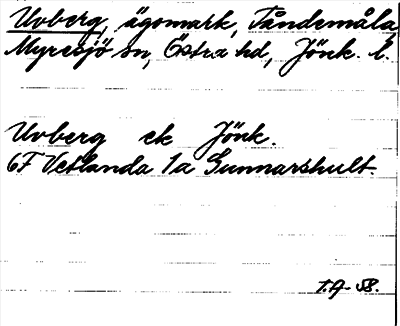 Uvberg, ägomark, Tåndemåla
Myresjö sn, Östra hd, Jönk. l.
Uvberg ek Jönk.
6F Vetlanda 1a Gunnarshult.
T.A-58.